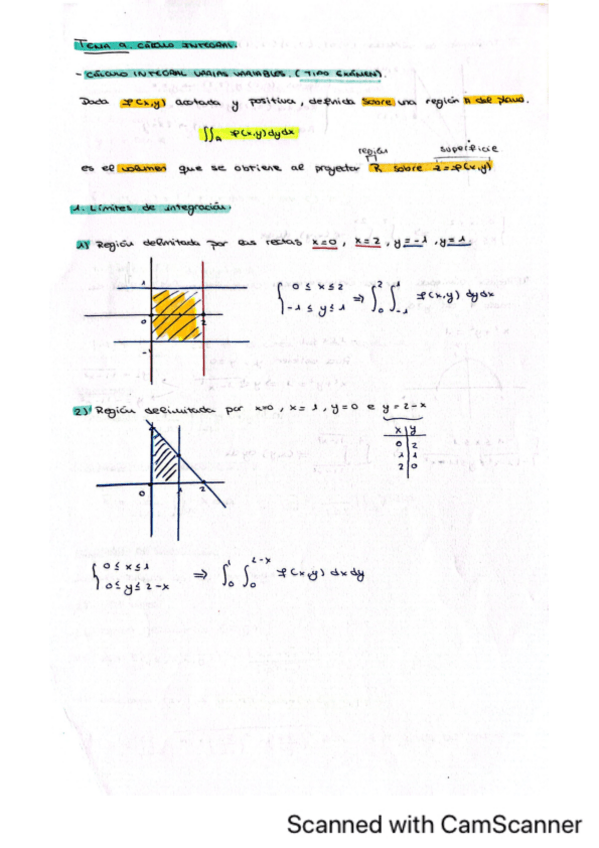 TEMA 9. CÁLCULO INTEGRAL.
- CÁLCULO INTEGRAL VARIAS VARIABLES. (TIPO EXÁMEN).
Dada f(x,y) acotada y positiva, definida sobre una región R del plano.
∬_R f(x,y) dy dx
región superficie
es el volumen que se obtiene al proyectar R sobre z=f(x,y)
1. Límites de integración.
1) Región delimitada por las rectas x=0, x=2, y=-1, y=1.
1
0 2
-1
{ 0 ≤ x ≤ 2
-1 ≤ y ≤ 1 ⇒ ∫_0^2 ∫_{-1}^1 f(x,y) dy dx
2) Región delimitada por x=0, x=1, y=0 e y=2-x
x | y
0 | 2
1 | 1
2 | 0
0 1 2
{ 0 ≤ x ≤ 1
0 ≤ y ≤ 2-x ⇒ ∫_0^1 ∫_0^{2-x} f(x,y) dx dy
Scanned with CamScanner